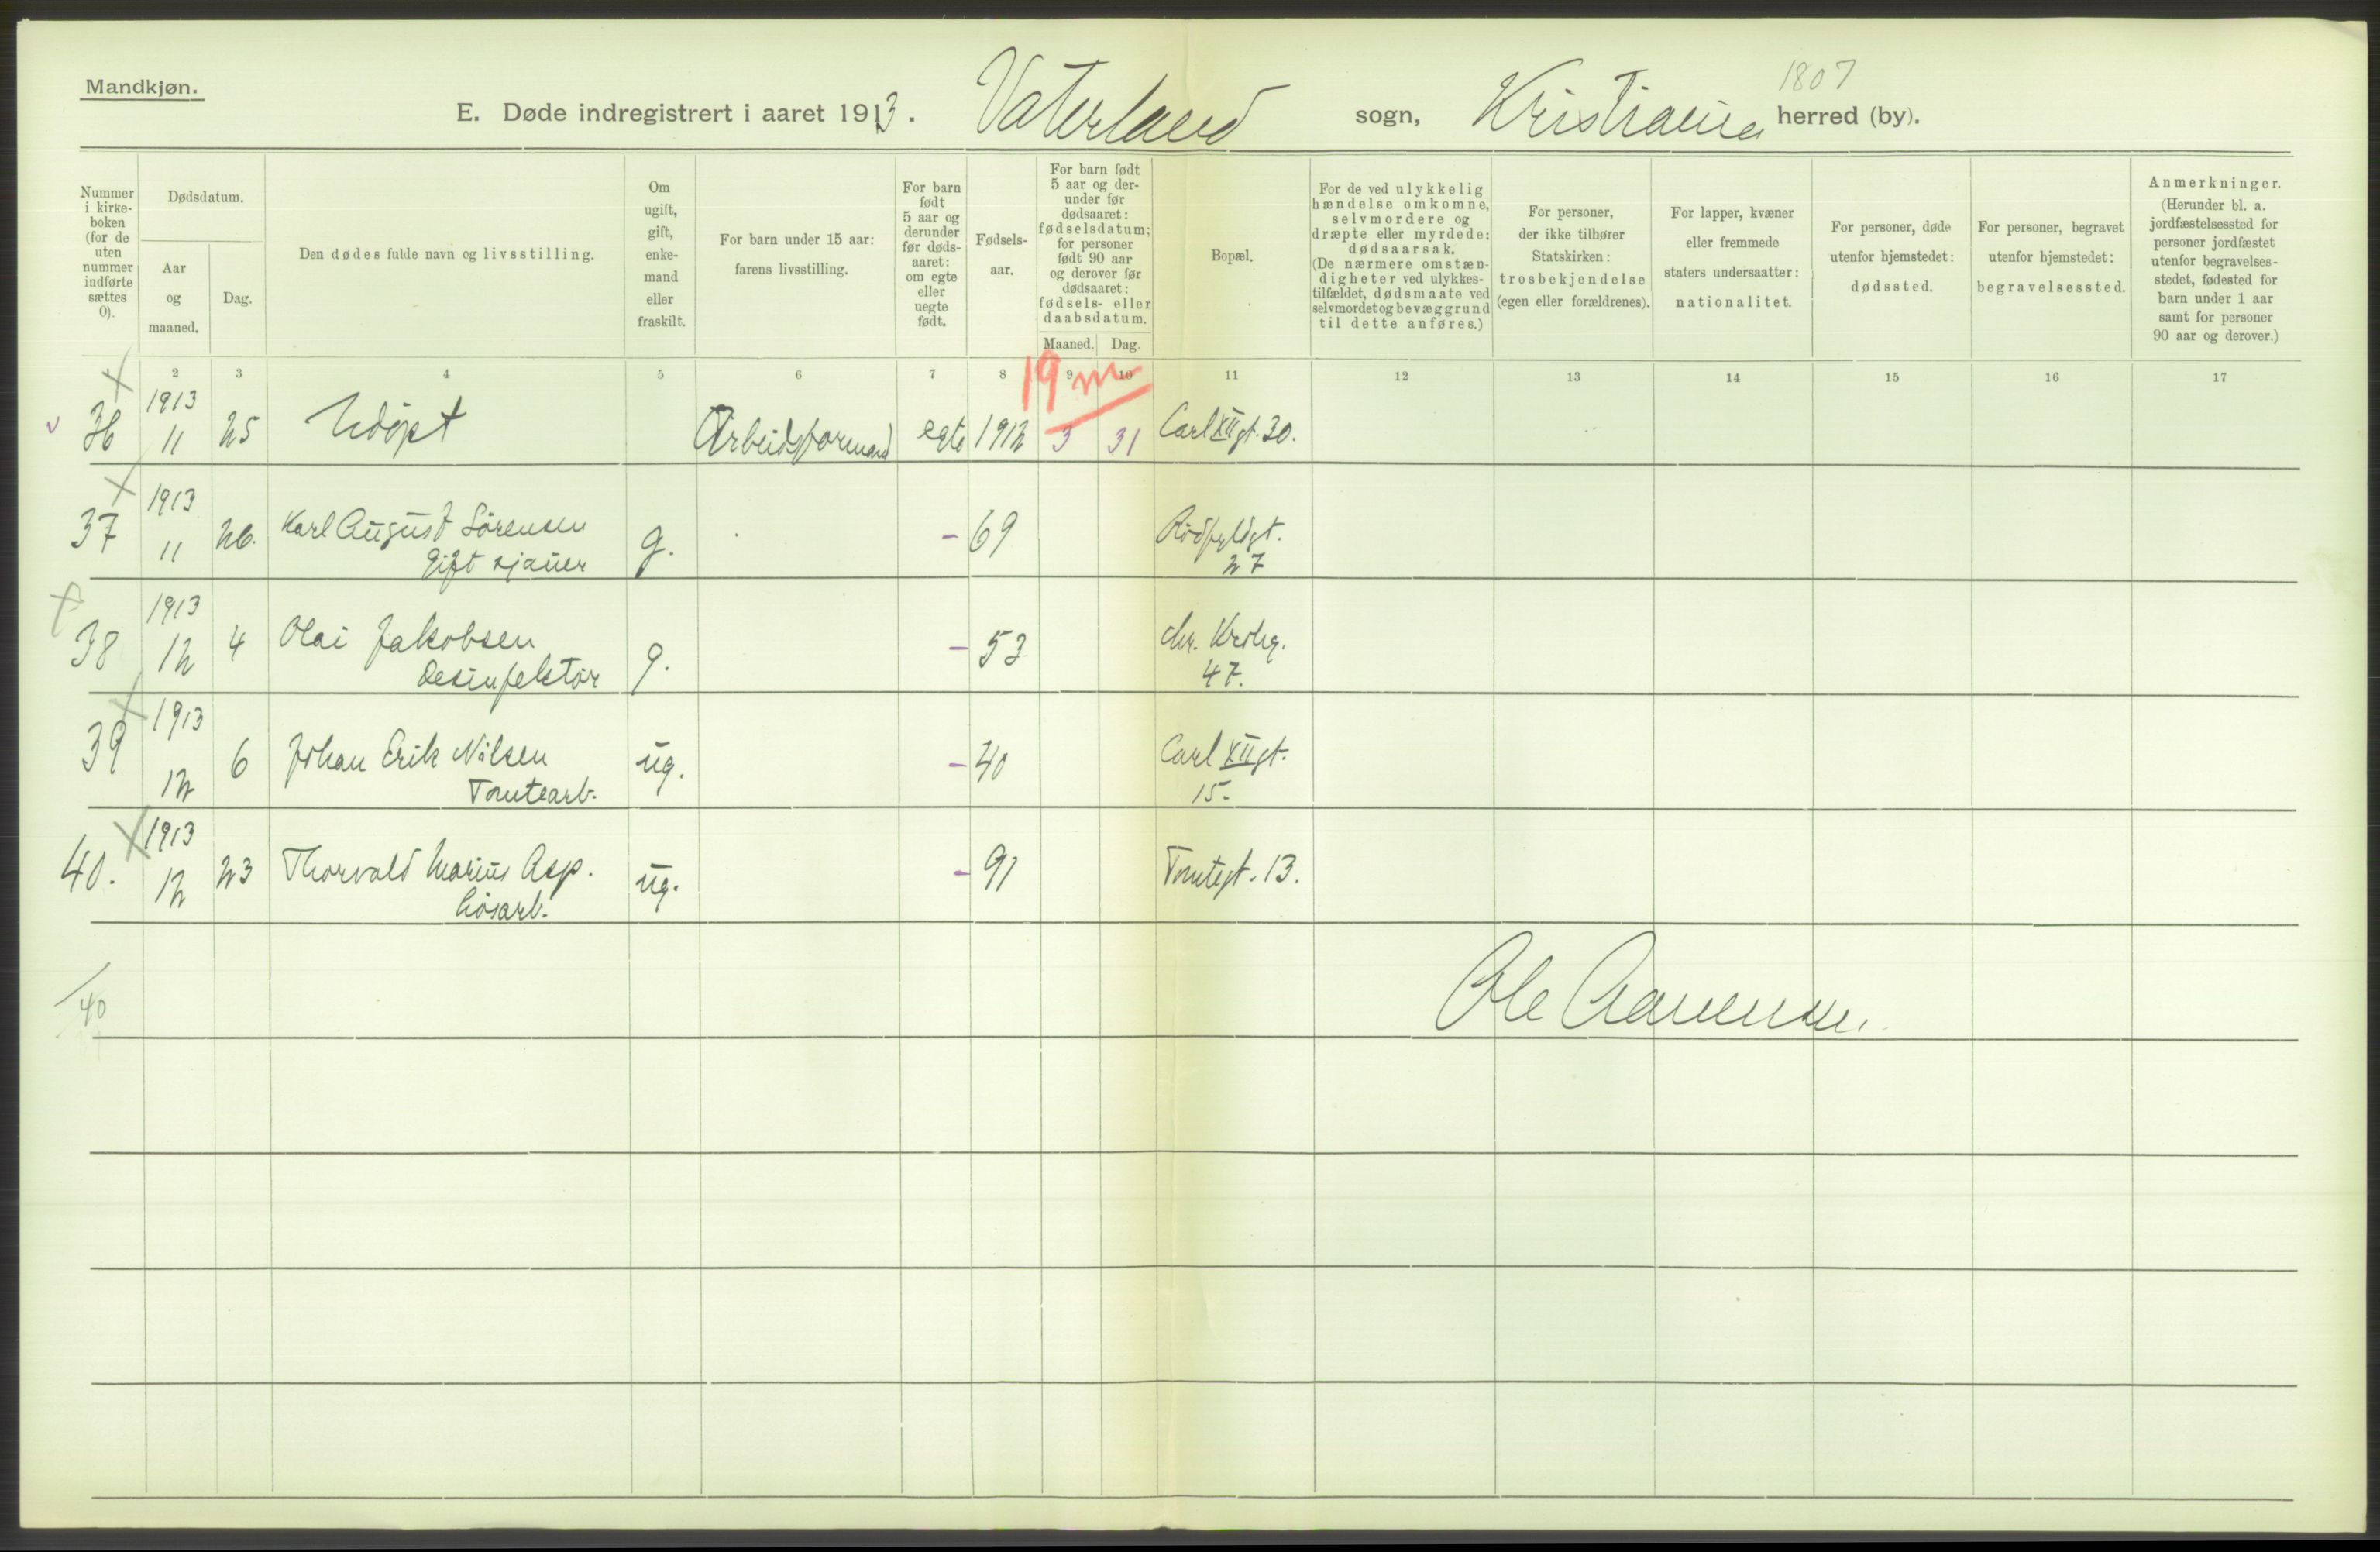 Mandkjøn.
1807
E. Døde indregistrert i aaret 1913. Vaterland sogn, Kristiania herred (by).
Nummer i kirke-boken (for de uten nummer indførte sættes 0).
Dødsdatum.
Aar og maaned.
Dag.
Den dødes fulde navn og livsstilling.
Om ugift, gift, enke-mand eller fraskilt.
For barn under 15 aar: farens livsstilling.
For barn født 5 aar og derunder før døds-aaret: om egte eller uegte født.
Fødsels-aar.
For barn født 5 aar og der-under før dødsaaret: fødselsdatum; for personer født 90 aar og derover før dødsaaret: fødsels- eller daabsdatum.
Maaned. Dag.
Bopæl.
For de ved ulykkelig hændelse omkomne, selvmordere og dræpte eller myrdede: dødsaarsak. (De nærmere omstæn-digheter ved ulykkes-tilfældet, dødsmaate ved selvmordet og bevæggrund til dette anføres.)
For personer, der ikke tilhører Statskirken: trosbekjendelse (egen eller forældrenes).
For lapper, kvæner eller fremmede staters undersaatter: nationalitet.
For personer, døde utenfor hjemstedet: dødssted.
For personer, begravet utenfor hjemstedet: begravelsessted.
Anmerkninger. (Herunder bl. a. jordfæstelsessted for personer jordfæstet utenfor begravelses-stedet, fødested for barn under 1 aar samt for personer 90 aar og derover.)
2 3 4 5 6 7 8 9 10 11 12 13 14 15 16 17
19 m
36 1913 11 25 Udøpt Arbeidsformand egte 1912 3 31 Carl XII gt. 30.
37 1913 11 26. Karl August Sörensen g. - 69 Rødfyldgt.
Gift sjauer 27
38 1913 12 4 Olai Jakobsen g. - 53 Chr. Krohg.
Desinfektør 47.
39 1913 12 6 Johan Erik Nilsen ug. - 40 Carl XII gt.
Tomtearb. 15.
40. 1913 12 23 Thorvald Marius Asp. ug. - 91 Tomtegt. 13.
Løsarb.
40
Ole